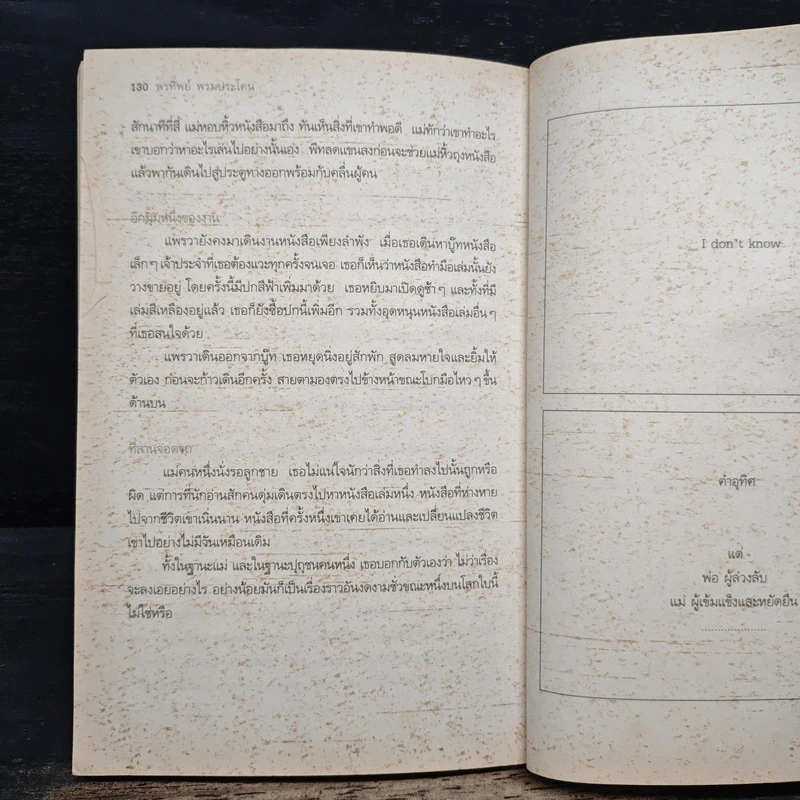 130 พรทิพย์ พรมประโคน
สักนาทีที่สี่ แม่หอบหิ้วหนังสือมาถึง ทันเห็นสิ่งที่เขาทำพอดี แม่ทักว่าเขาทำอะไร
เขาบอกว่าหาอะไรเล่นไปอย่างนั้นเอง พีทลดแขนลงก่อนจะช่วยแม่หิ้วถุงหนังสือ
แล้วพากันเดินไปสู่ประตูทางออกพร้อมกับคลื่นผู้คน
อีกมุมหนึ่งของงาน
แพรวายังคงมาเดินงานหนังสือเพียงลำพัง เมื่อเธอเดินหาบู๊ทหนังสือ
เล็กๆ เจ้าประจำที่เธอต้องแวะทุกครั้งจนเจอ เธอก็เห็นว่าหนังสือทำมือเล่มนั้นยัง
วางขายอยู่ โดยครั้งนี้มีปกสีฟ้าเพิ่มมาด้วย เธอหยิบมาเปิดดูช้าๆ และทั้งที่มี
เล่มสีเหลืองอยู่แล้ว เธอก็ยังซื้อปกนี้เพิ่มอีก รวมทั้งอุดหนุนหนังสือเล่มอื่นๆ
ที่เธอสนใจด้วย
แพรวาเดินออกจากบู๊ท เธอหยุดนิ่งอยู่สักพัก สูดลมหายใจและยิ้มให้
ตัวเอง ก่อนจะก้าวเดินอีกครั้ง สายตามองตรงไปข้างหน้าขณะโบกมือไหวๆ ขึ้น
ด้านบน
ที่ลานจอดรถ
แม่คนหนึ่งนั่งรอลูกชาย เธอไม่แน่ใจนักว่าสิ่งที่เธอทำลงไปนั้นถูกหรือ
ผิด แต่การที่นักอ่านสักคนดุ่มเดินตรงไปหาหนังสือเล่มหนึ่ง หนังสือที่ห่างหาย
ไปจากชีวิตเขาเนิ่นนาน หนังสือที่ครั้งหนึ่งเขาเคยได้อ่านและเปลี่ยนแปลงชีวิต
เขาไปอย่างไม่มีวันเหมือนเดิม
ทั้งในฐานะแม่ และในฐานะปุถุชนคนหนึ่ง เธอบอกกับตัวเองว่า ไม่ว่าเรื่อง
จะลงเอยอย่างไร อย่างน้อยมันก็เป็นเรื่องราวอันงดงามชั่วขณะหนึ่งบนโลกใบนี้
ไม่ใช่หรือ
I don't know
คำอุทิศ
แด่
พ่อ ผู้ล่วงลับ
แม่ ผู้เข้มแข็งและหยัดยืน